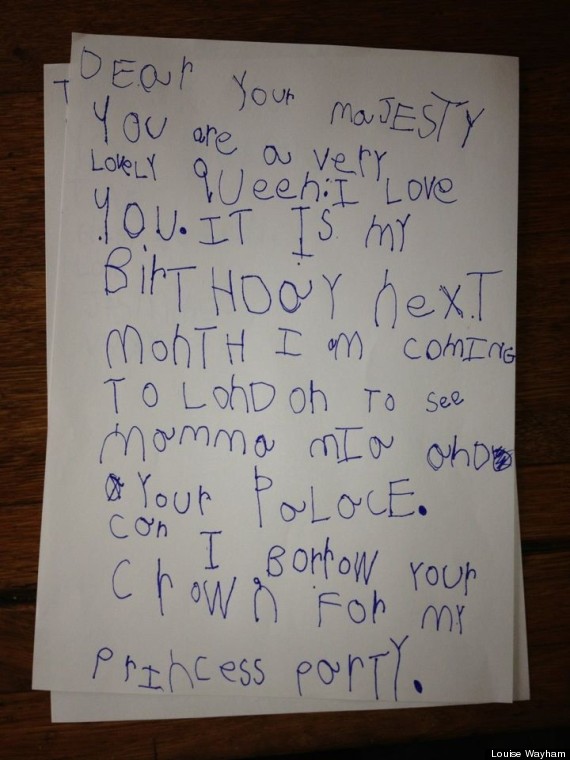 DEar Your maJESTY
You are a very
LOVELY QUeen: I Love
YOU. IT IS MY
BirTHDaY nexT
monTH I am comING
TO LonDon TO see
mamma mIa anD
Your PaLaCE.
can I Borrow Your
Crown For MY
PrIncess ParTY.
T
Louise Wayham